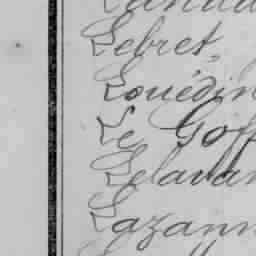 Lebret
Louédin
Le Goff
Lelavan
Lazann